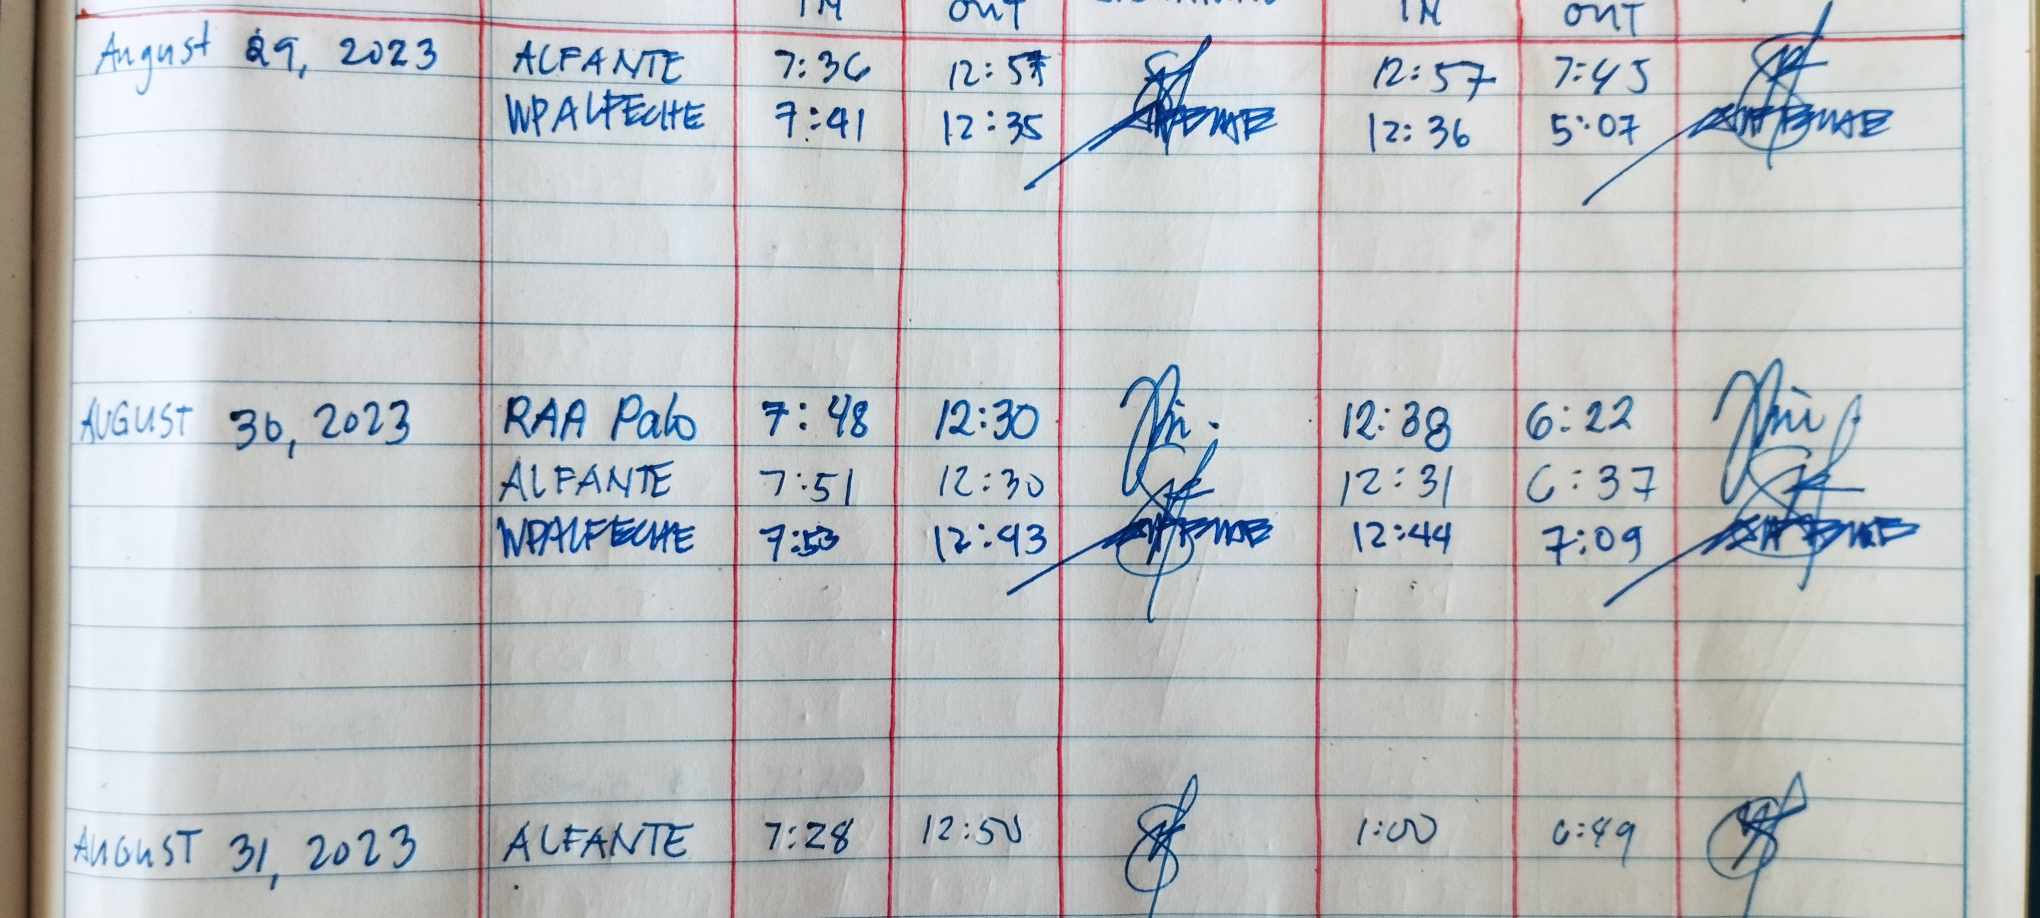 IN OUT IN OUT
August 29, 2023 ALFANTE 7:36 12:57 12:57 7:45
WPALFECHE 7:41 12:35 12:36 5:07
AUGUST 30, 2023 RAA Palo 7:48 12:30 12:38 6:22
ALFANTE 7:51 12:30 12:31 6:37
WPALFECHE 7:53 12:43 12:44 7:09
AUGUST 31, 2023 ALFANTE 7:28 12:50 1:00 6:49